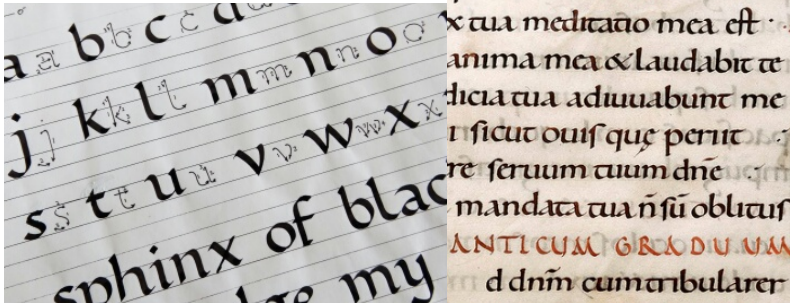 a a b b c c d
j j k k l l m m n n o o
s s t t u u v v w w x x
sphinx of blac
ge my
x tua meditatio mea eſt ·
anima mea & laudabit te
dicia tua adiuuabunt me
ſicut ouiſ quę periit
re ſeruum tuum dn̄e
mandata tua n̄ ſū oblituſ
ANTICUM GRADUUM
d dn̄m cum tribularer